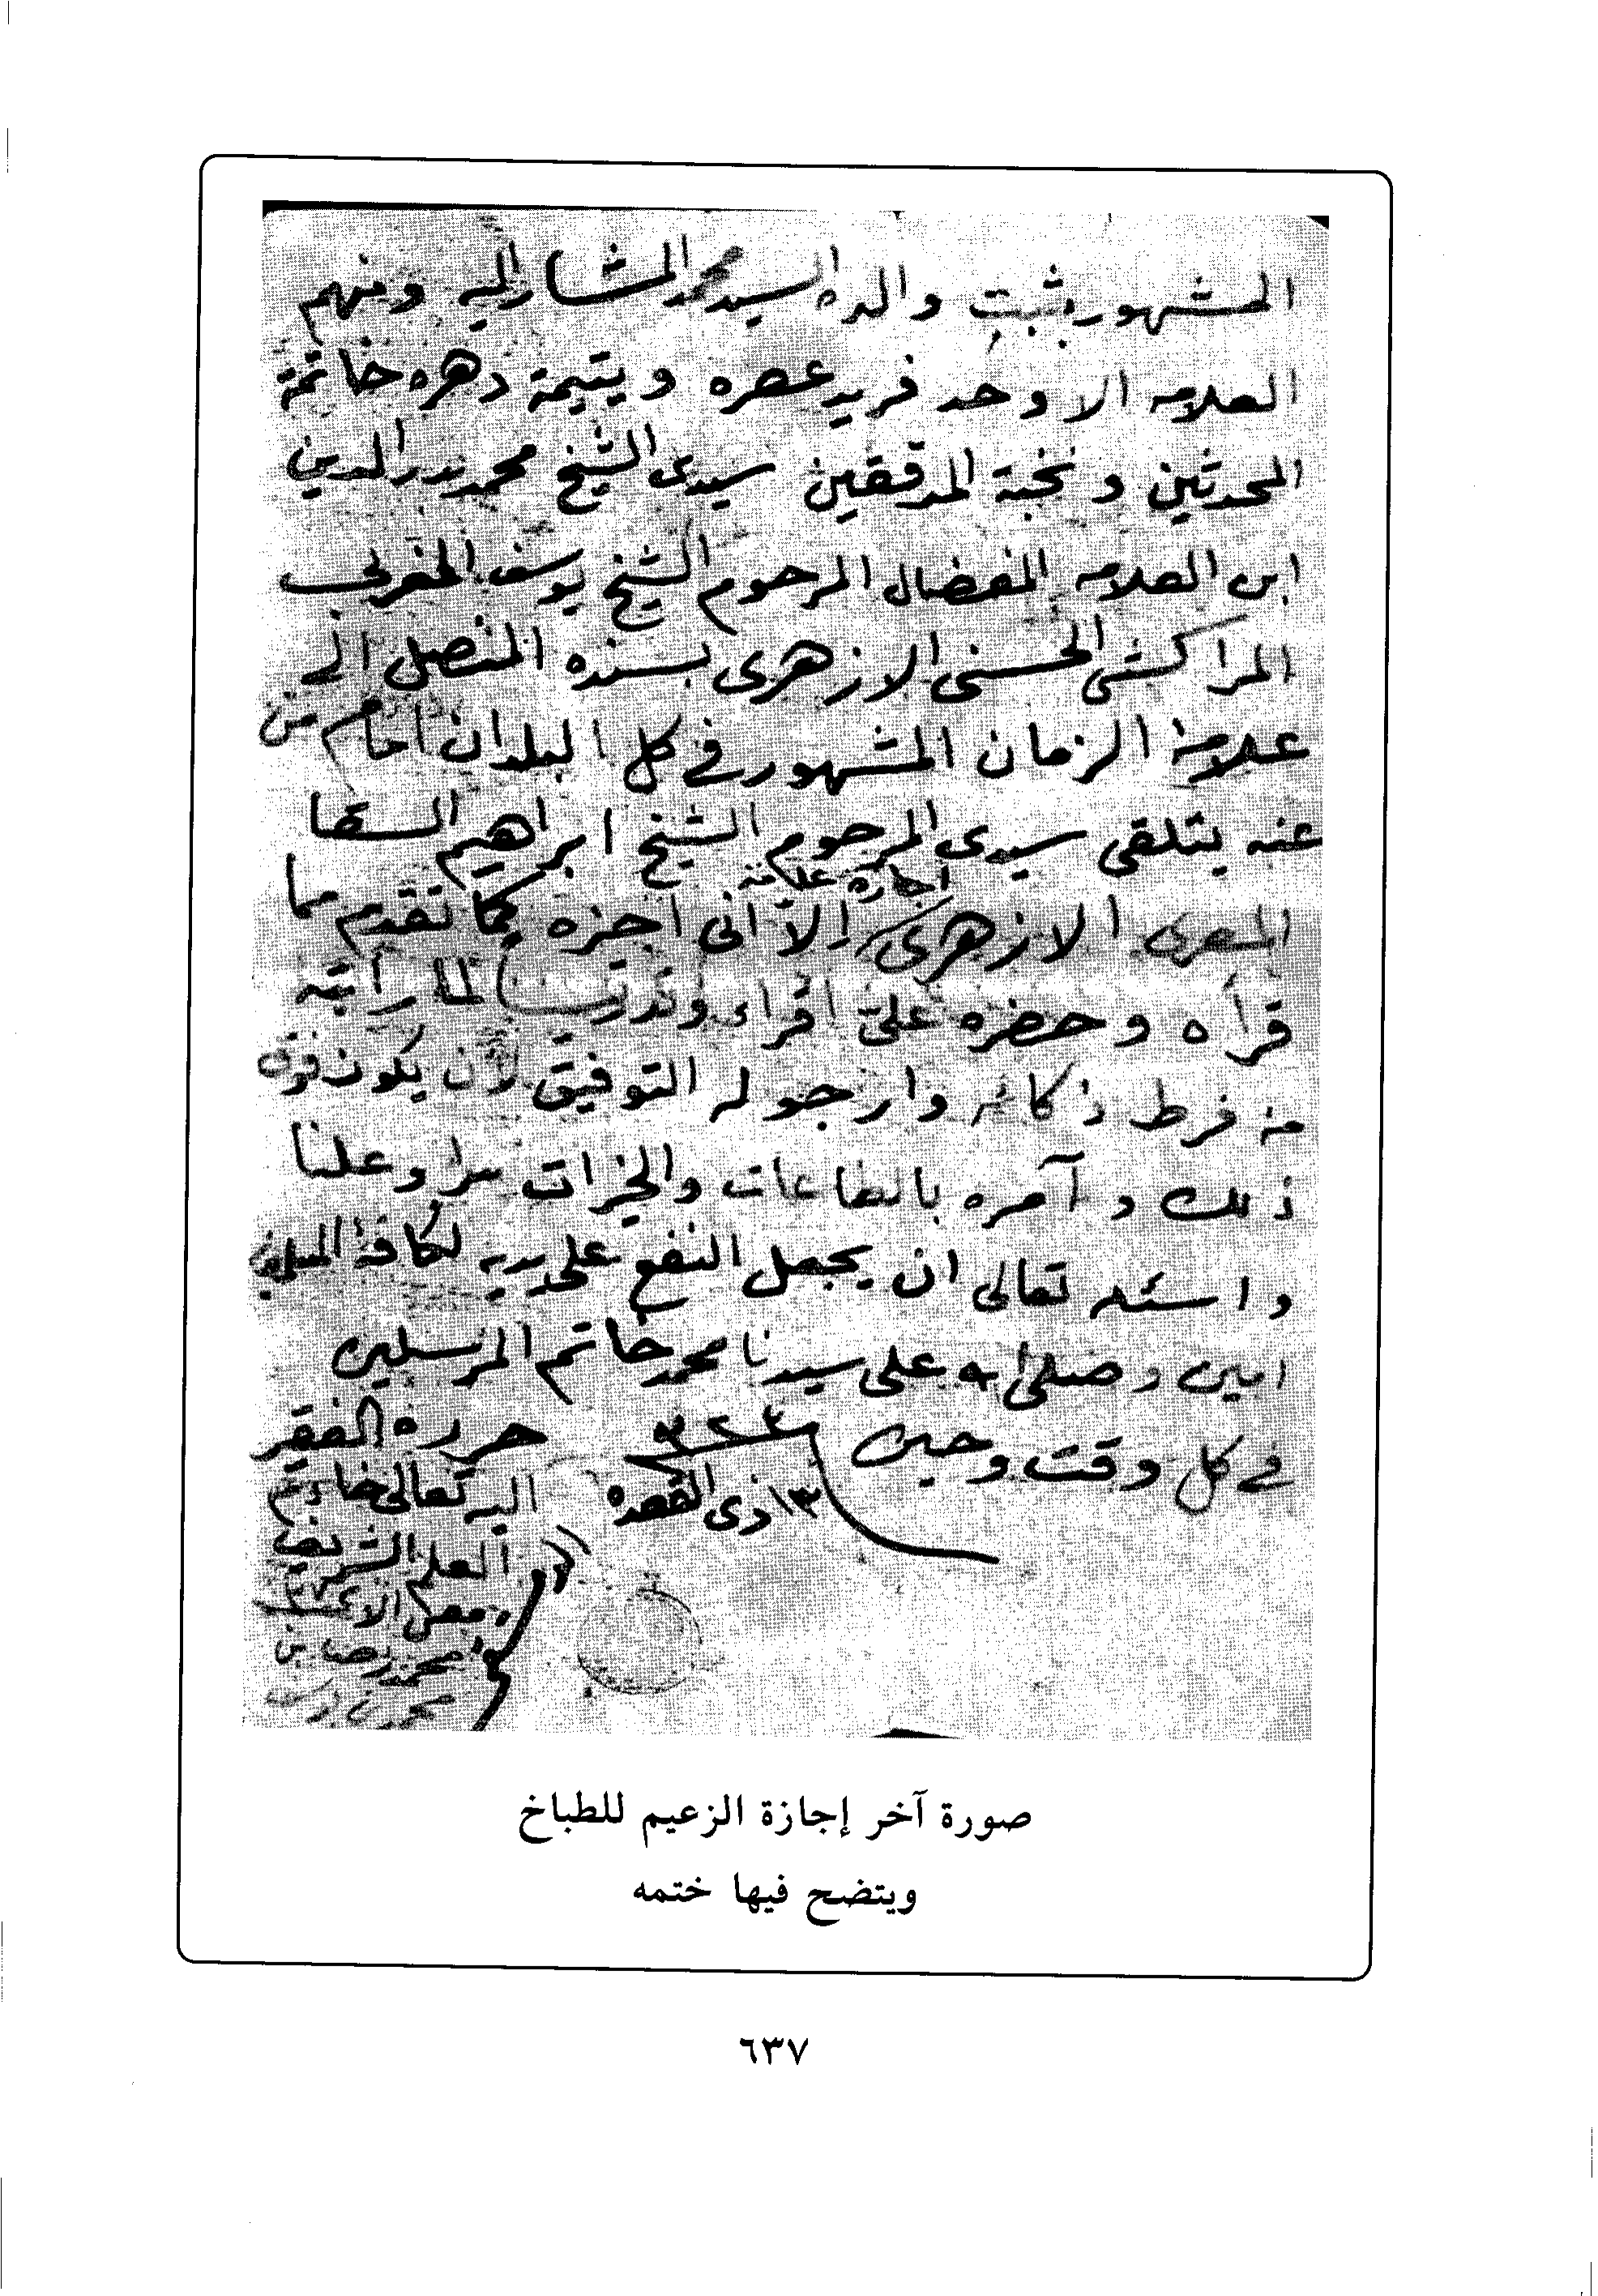 المشهور بثبت والده السيد محمد المشار اليه ومنهم
العلامه الاوحد فريد عصره ويتيمة دهره خاتمة
المحدثين ونخبة المدققين سيدى الشيخ محمد بدر الدين
ابن العلامه المفضال المرحوم الشيخ يوسف المغربى
المراكشى الحسنى الازهرى بسنده المتصل الى
علامة الزمان المشهور فى كل البلدان امام من
عنه يتلقى سيدى المرحوم الشيخ ابراهيم السقا
المصرى الازهرى الا انى اجزه اجازه عامة كما تقدم بما
قرأه وحضره على اقراء وتدريسا لما رأيته
من فرط ذكائه وارجو له التوفيق لأن يكون فوق
ذلك وآمره بالطاعات والخيرات سرا وعلنا
واسئله تعالى ان يجعل النفع على يديه لكافة المسلمين
امين وصلى الله على سيدنا محمد خاتم المرسلين
فى كل وقت وحين ٣٢٣ حرره الفقير
١٣ ذى القعده اليه تعالى خادم
العلم الشريف
محمد رضا بن
صورة آخر إجازة الزعيم للطباخ
ويتضح فيها ختمه
٦٣٧